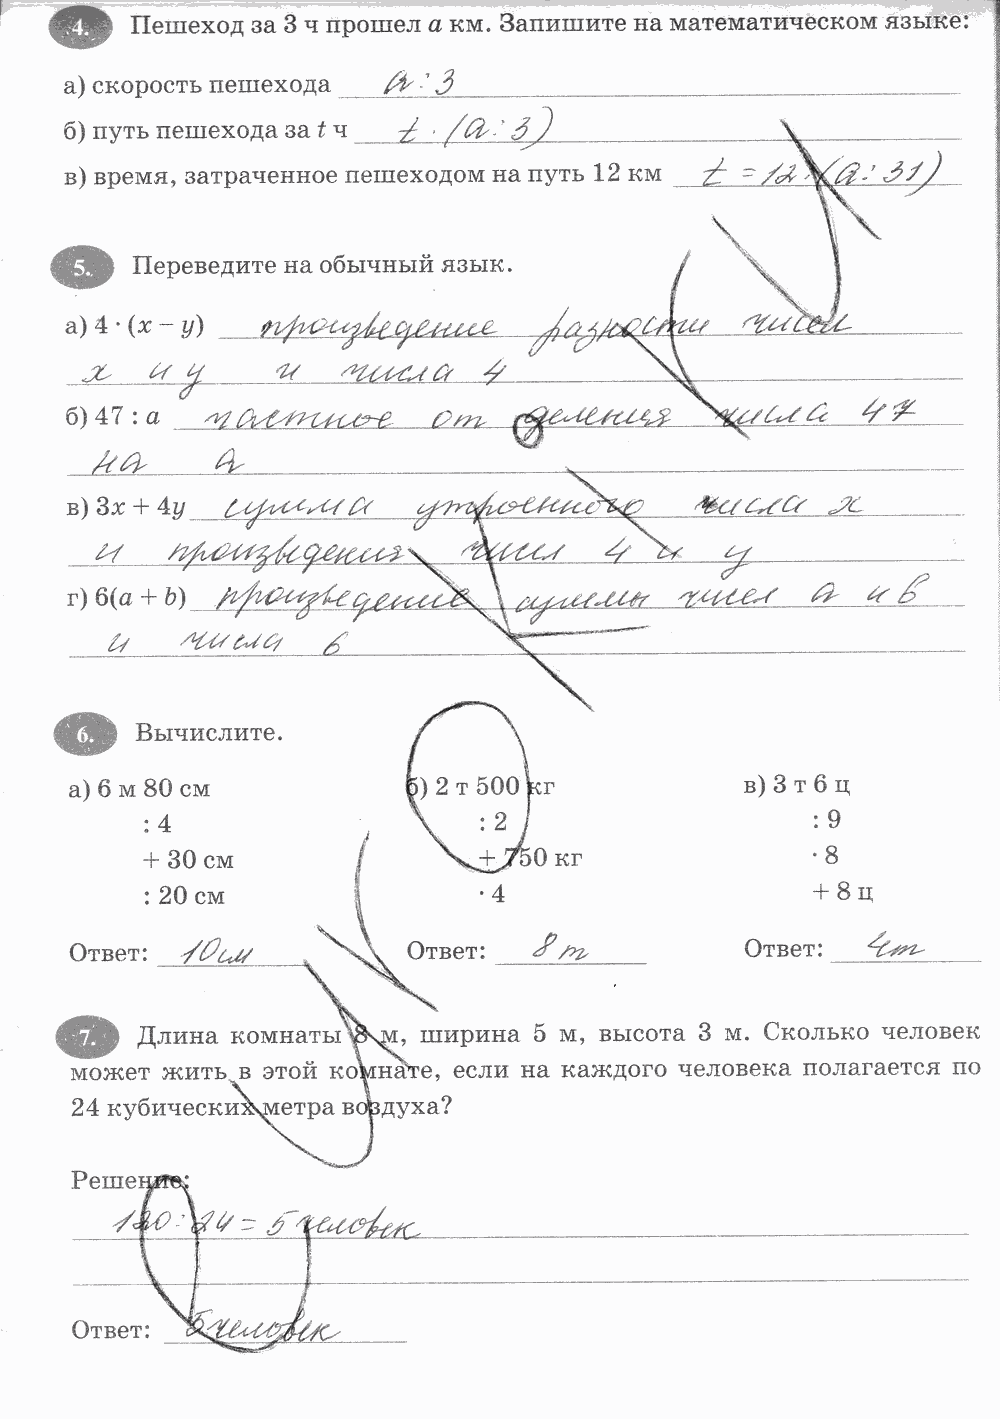 4. Пешеход за 3 ч прошел a км. Запишите на математическом языке:
а) скорость пешехода a : 3
б) путь пешехода за t ч t · (a : 3)
в) время, затраченное пешеходом на путь 12 км t = 12 : (a : 31)
5. Переведите на обычный язык.
а) 4 · (x – y) произведение разности чисел
x и y и числа 4
б) 47 : a частное от деления числа 47
на a
в) 3x + 4y сумма утроенного числа x
и произведения чисел 4 и y
г) 6(a + b) произведение суммы чисел a и в
и числа 6
6. Вычислите.
а) 6 м 80 см б) 2 т 500 кг в) 3 т 6 ц
: 4 : 2 : 9
+ 30 см + 750 кг · 8
: 20 см · 4 + 8 ц
Ответ: 10см Ответ: 8 т Ответ: 4т
7. Длина комнаты 8 м, ширина 5 м, высота 3 м. Сколько человек
может жить в этой комнате, если на каждого человека полагается по
24 кубических метра воздуха?
Решение:
120 : 24 = 5 человек
Ответ: 5 человек